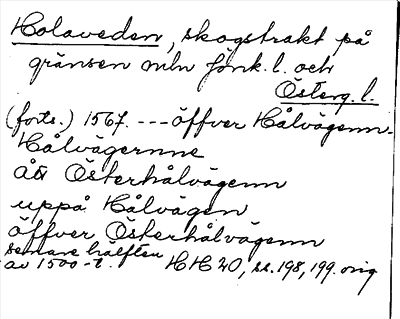 Holaveden, skogstrakt på
gränsen mln Jönk. l. och
Österg. l.
(forts.) 1567. --- öffver Hålvägenn.
Hålvägernne
åå Österhålvägenn
uppå Hålvägen
öffver Österhålvägenn
senare hälften
av 1500-t. HH 20, ss. 198, 199. orig